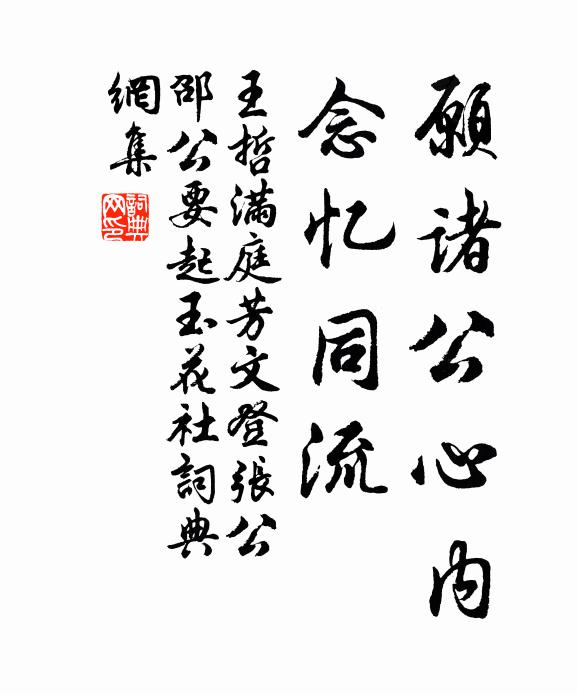 願諸公心内
念忆同流
王哲满庭芳文登張公
邵公要起玉花社詞典
網集
詞典網印